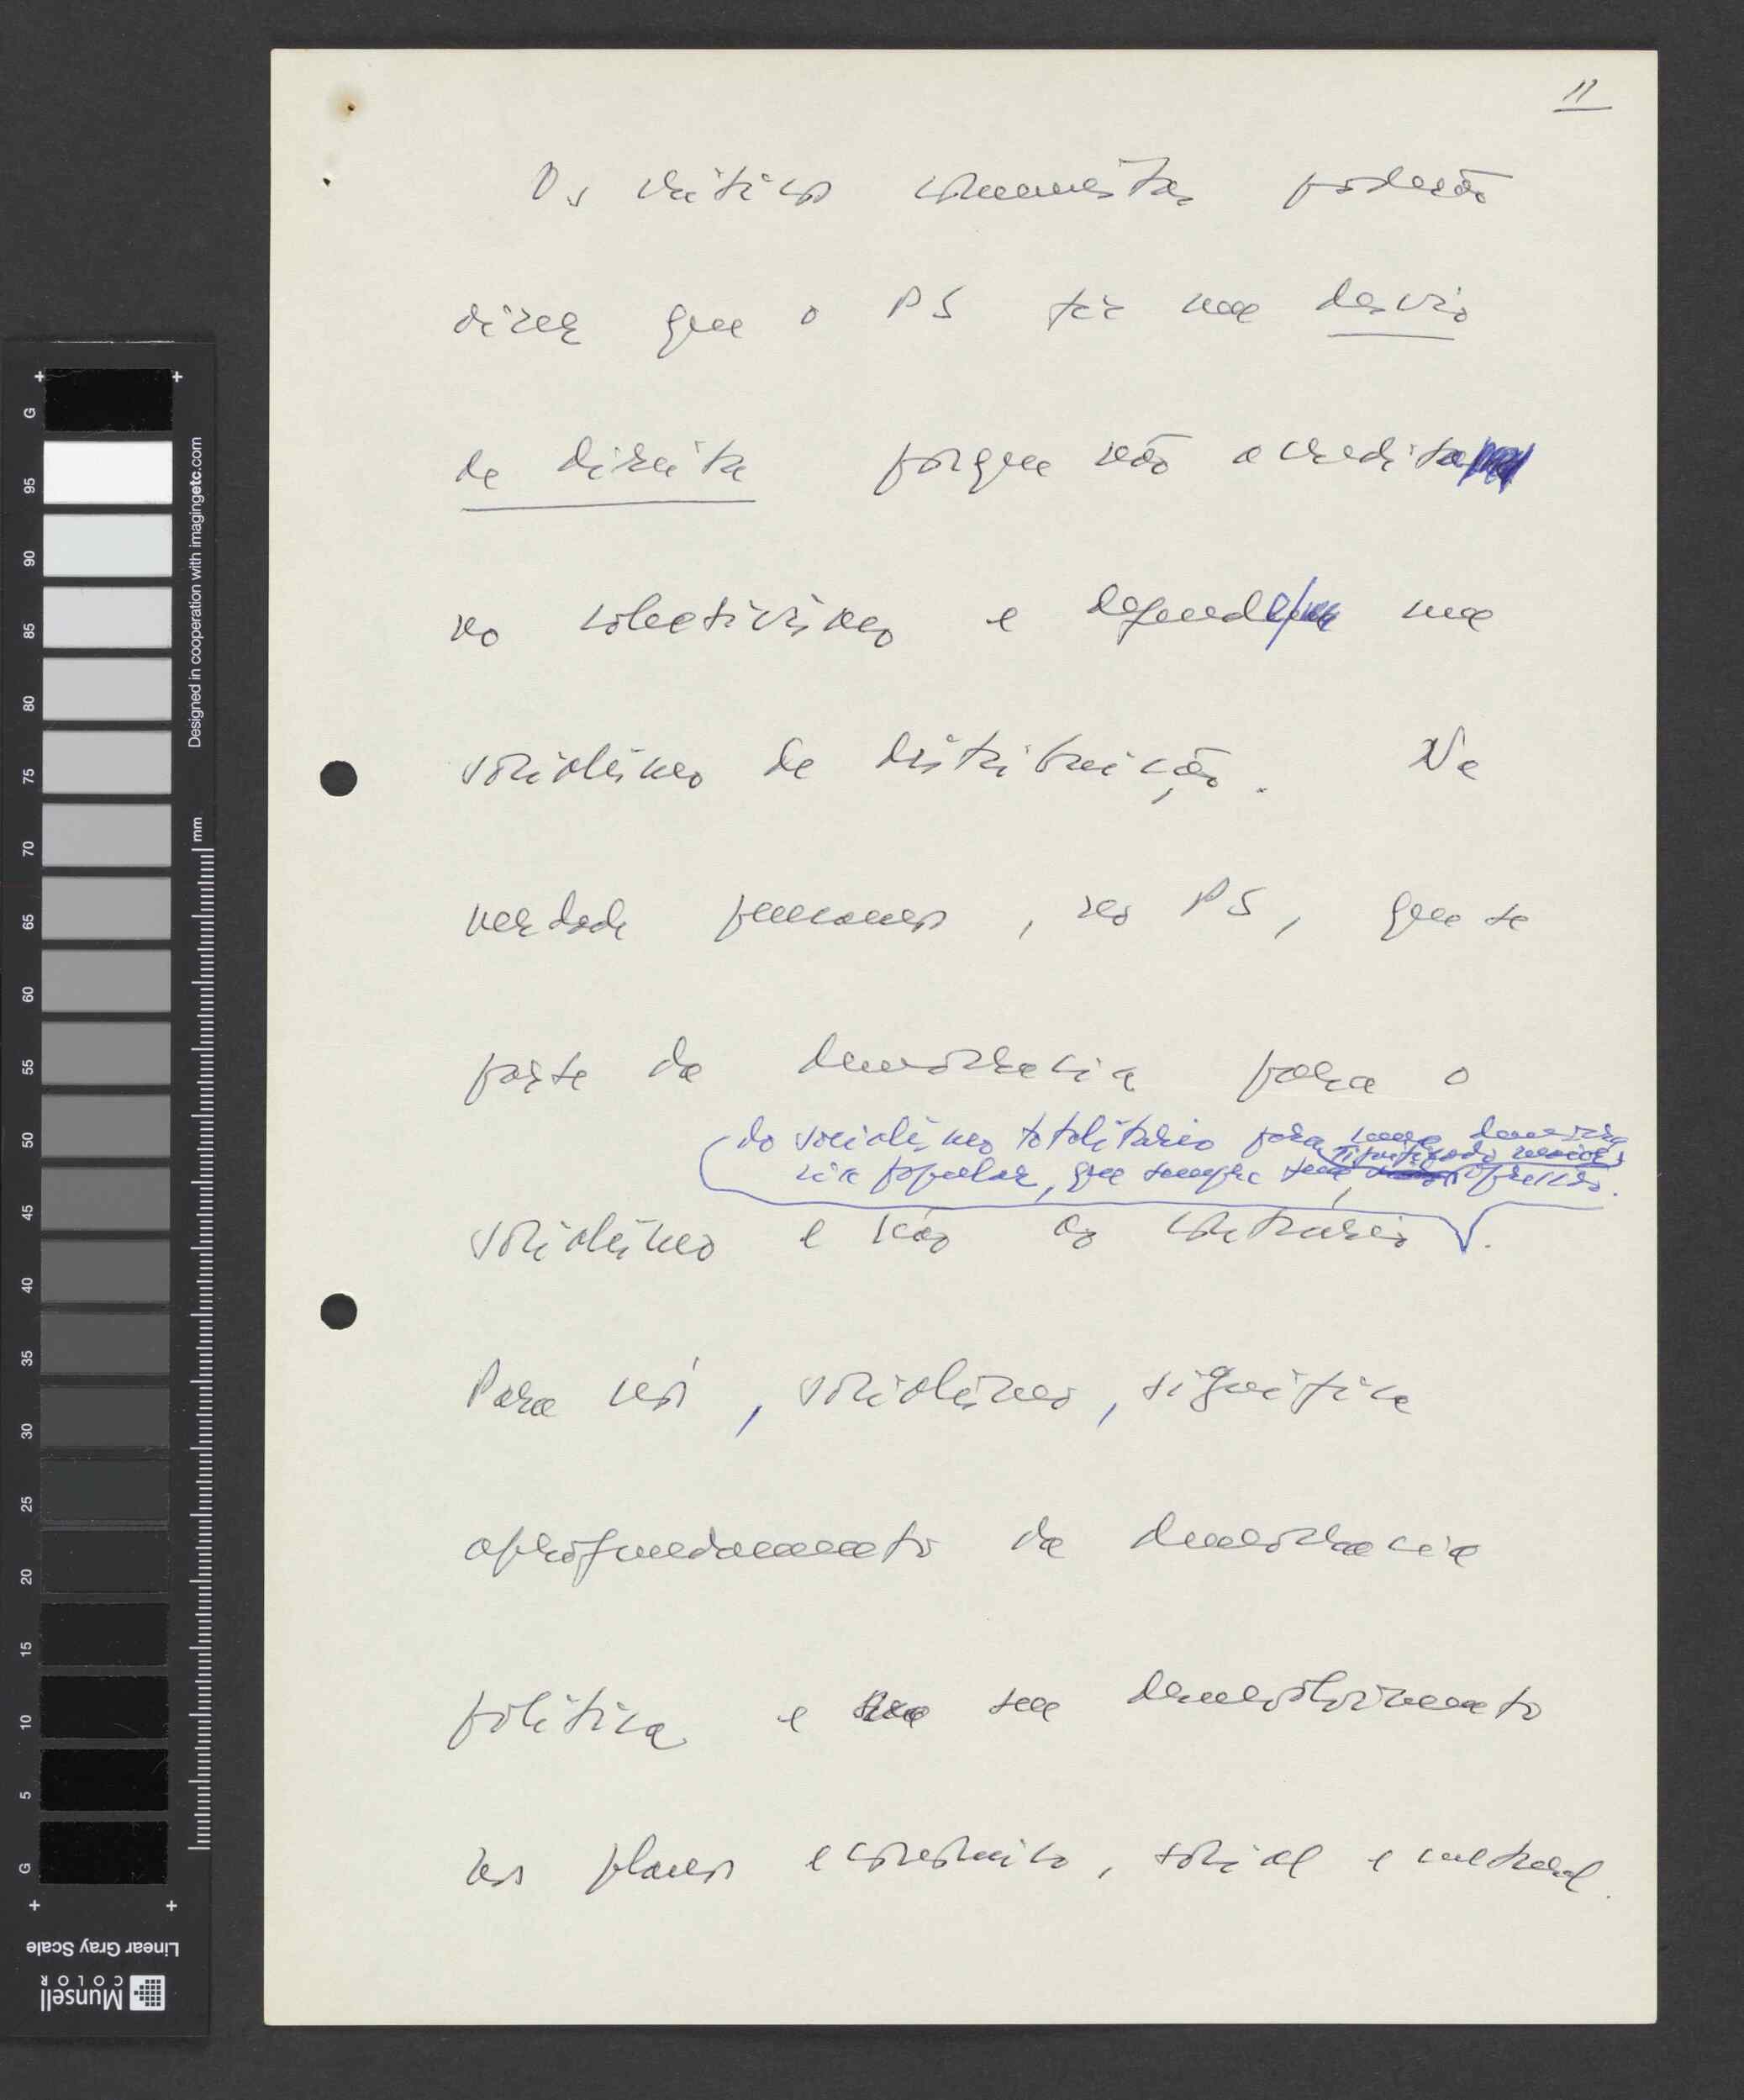 11
Os críticos comunistas poderão
dizer que o PS fez um desvio
de direita porque não acredita
no colectivismo e defende um
socialismo de distribuição. Na
verdade pensamos, no PS, que se
parte da democracia para o
do socialismo totalitário para uma democra
cia popular, que sempre significado opressão.
socialismo e não ao contrário.
Para nós, socialismo, significa
aprofundamento da democracia
política e seu desenvolvimento
nos planos económico, social e cultural.
G
95
90
85
80
75
70
65
60
55
50
45
40
35
30
25
20
15
10
5
G
mm
Designed in cooperation with imagingetc.com
Linear Gray Scale
Munsell
COLOR